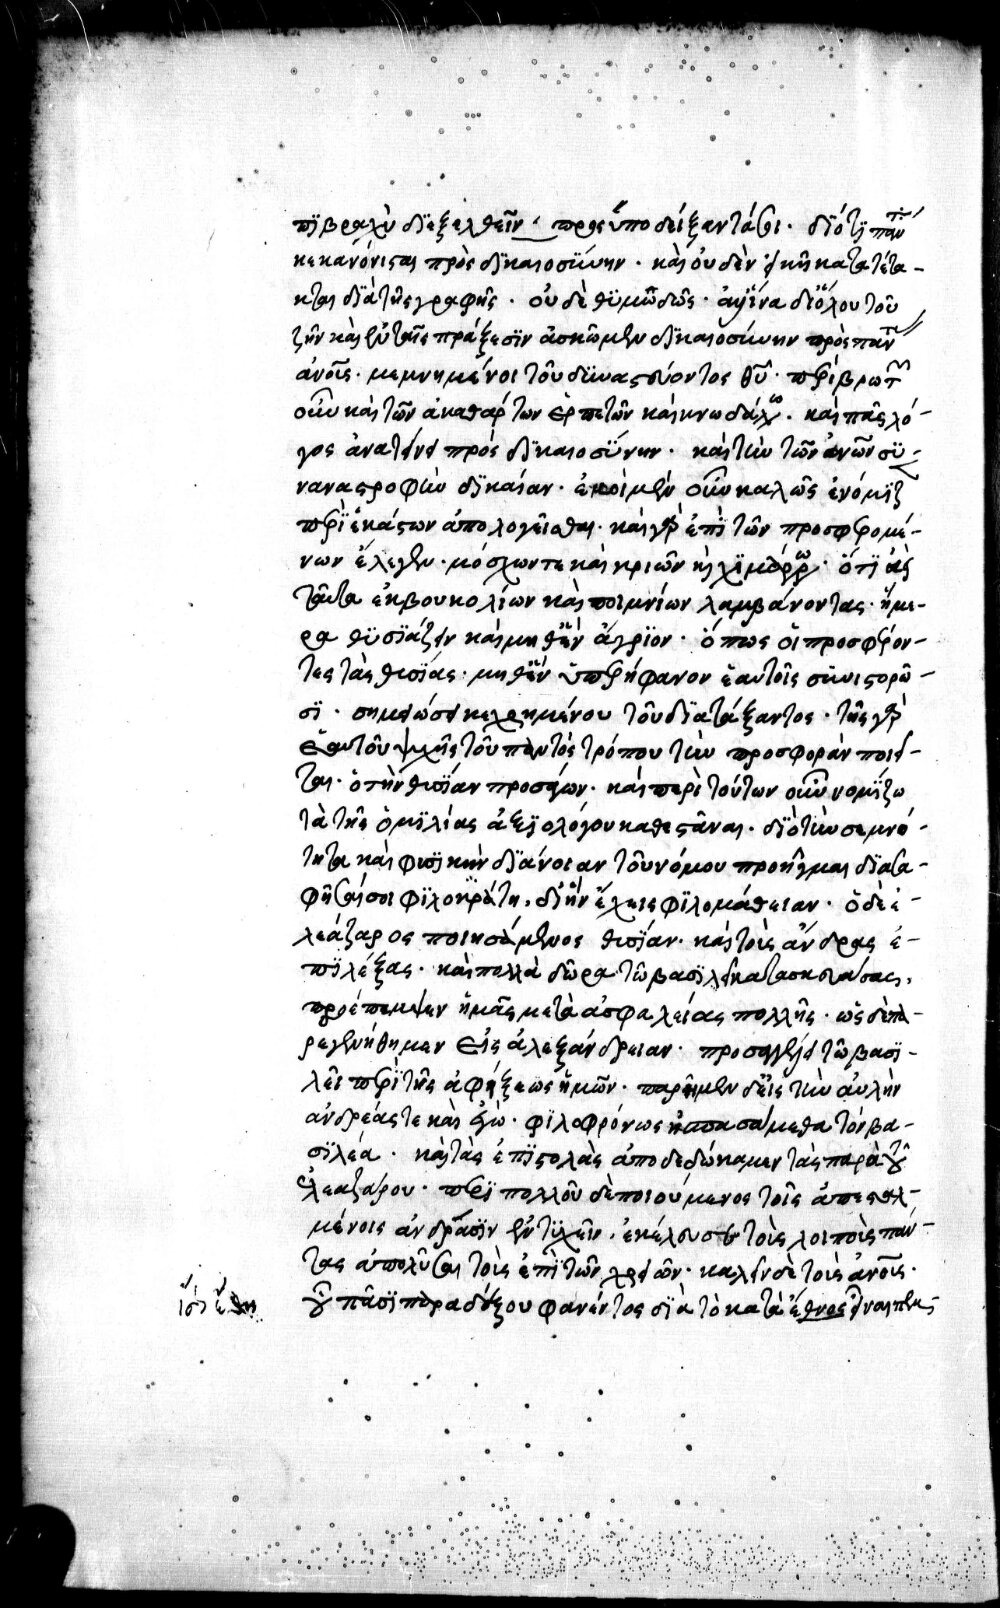 πϊ βραχὺ διεξελθεῖν · προσϋποδείξαντά σοι · διότϊ πάντα
κεκανόνισται πρὸς δικαιοσύνην · καὶ οὐδὲν εἰκῆ κατατέτα-
κται διὰ τῆς γραφῆς · οὐδὲ θυμωδῶς · ἀλλ' ἵνα δι' ὅλου τοῦ
ζῆν καὶ ἐν ταῖς πράξεσιν ἀσκῶμεν δικαιοσύνην πρὸς πάντας
ἀνοῦς · μεμνημένοι τοῦ δυναστεύοντος θῦ · περὶ βρωτῶν
οὖν καὶ τῶν ἀκαθάρτων ἑρπετῶν καὶ κνωδάλων · καὶ πᾶς λό-
γος ἀνατείνει πρὸς δικαιοσύνην · καὶ τὴν τῶν ἀνῶν συ-
ναναστροφὴν δικαίαν · ἐμοὶ μὲν οὖν καλῶς ἐνόμιζε
περὶ ἑκάστων ἀπολογεῖσθαι · καὶ γὰρ ἐπὶ τῶν προσφερομέ-
νων ἔλεγεν · μόσχων τε καὶ κριῶν καὶ χιμάρων · ὅτι δεῖ
ταῦτα ἐκ βουκολίων καὶ ποιμνίων λαμβάνοντας · ἥμε-
ρα θυσιάζειν καὶ μηθὲν ἄγριον · ὅπως οἱ προσφέρον-
τες τὰς θυσίας · μηθὲν ὑπερήφανον ἑαυτοῖς συνιστορῶ-
σϊ · σημειώσει κεχρημένου τοῦ διατάξαντος · τῆς γὰρ
ἑαυτοῦ ψυχῆς τοῦ παντὸς τρόπου τὴν προσφορὰν ποιεῖ-
ται · ὁ τὴν θυσίαν προσάγων · καὶ περὶ τούτων οὖν νομίζω
τὰ τῆς ὁμιλίας ἀξϊολόγου καθεστάναι · διὸ τὴν σεμνό-
τητα καὶ φυσικὴν διάνοιαν τοῦ νόμου προῆγμαι διασα-
φῆσαί σοι φιλόκρατη, δι' ἣν ἔχεις φιλομάθειαν · ὁ δὲ ἐ-
λεάζαρος ποιησάμενος θυσίαν · καὶ τοὺς ἄνδρας ἐ-
πϊλέξας · καὶ πολλὰ δῶρα τῶ βασιλεῖ κατασκευάσας,
προέπεμψεν ἡμᾶς μετὰ ἀσφαλείας πολλῆς · ὡς δὲ πα-
ρεγενήθημεν εἰς ἀλεξάνδρειαν · προσηγγέλη τῶ βασϊ-
λεῖ περὶ τῆς ἀφίξεως ἡμῶν · παρειμὲν δ' εἰς τὴν αὐλὴν
ἀνδρέας τε καὶ ἐγὼ · φιλοφρόνως ἠσπασάμεθα τὸν βα-
σιλέα · καὶ τὰς ἐπιστολὰς ἀποδεδώκαμεν τὰς παρὰ τοῦ
ἐλεαζάρου · περὶ πολλοῦ δὲ ποιούμενος τοῖς ἀπεσταλ-
μένοις ἀνδράσϊν ἐντυχεῖν, ἐκέλευσε τοὺς λοιποὺς πάν-
τας ἀπολῦσαι τοὺς ἐπὶ τῶν χρειῶν · καλεῖν δὲ τοὺς ἀνοῦς ·
οὗ πᾶσϊ παραδόξου φανέντος διὰ τὸ κατὰ ἔθνος εἶναι πεμ-